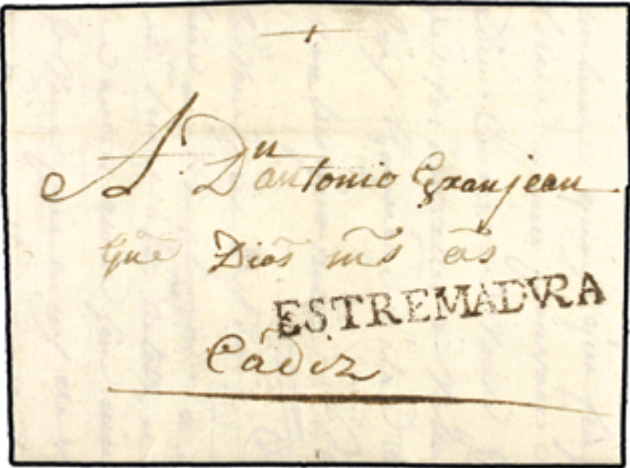 +
A Dn Antonio Granjean
Gue Dios ms as
ESTREMADVRA
Cádiz